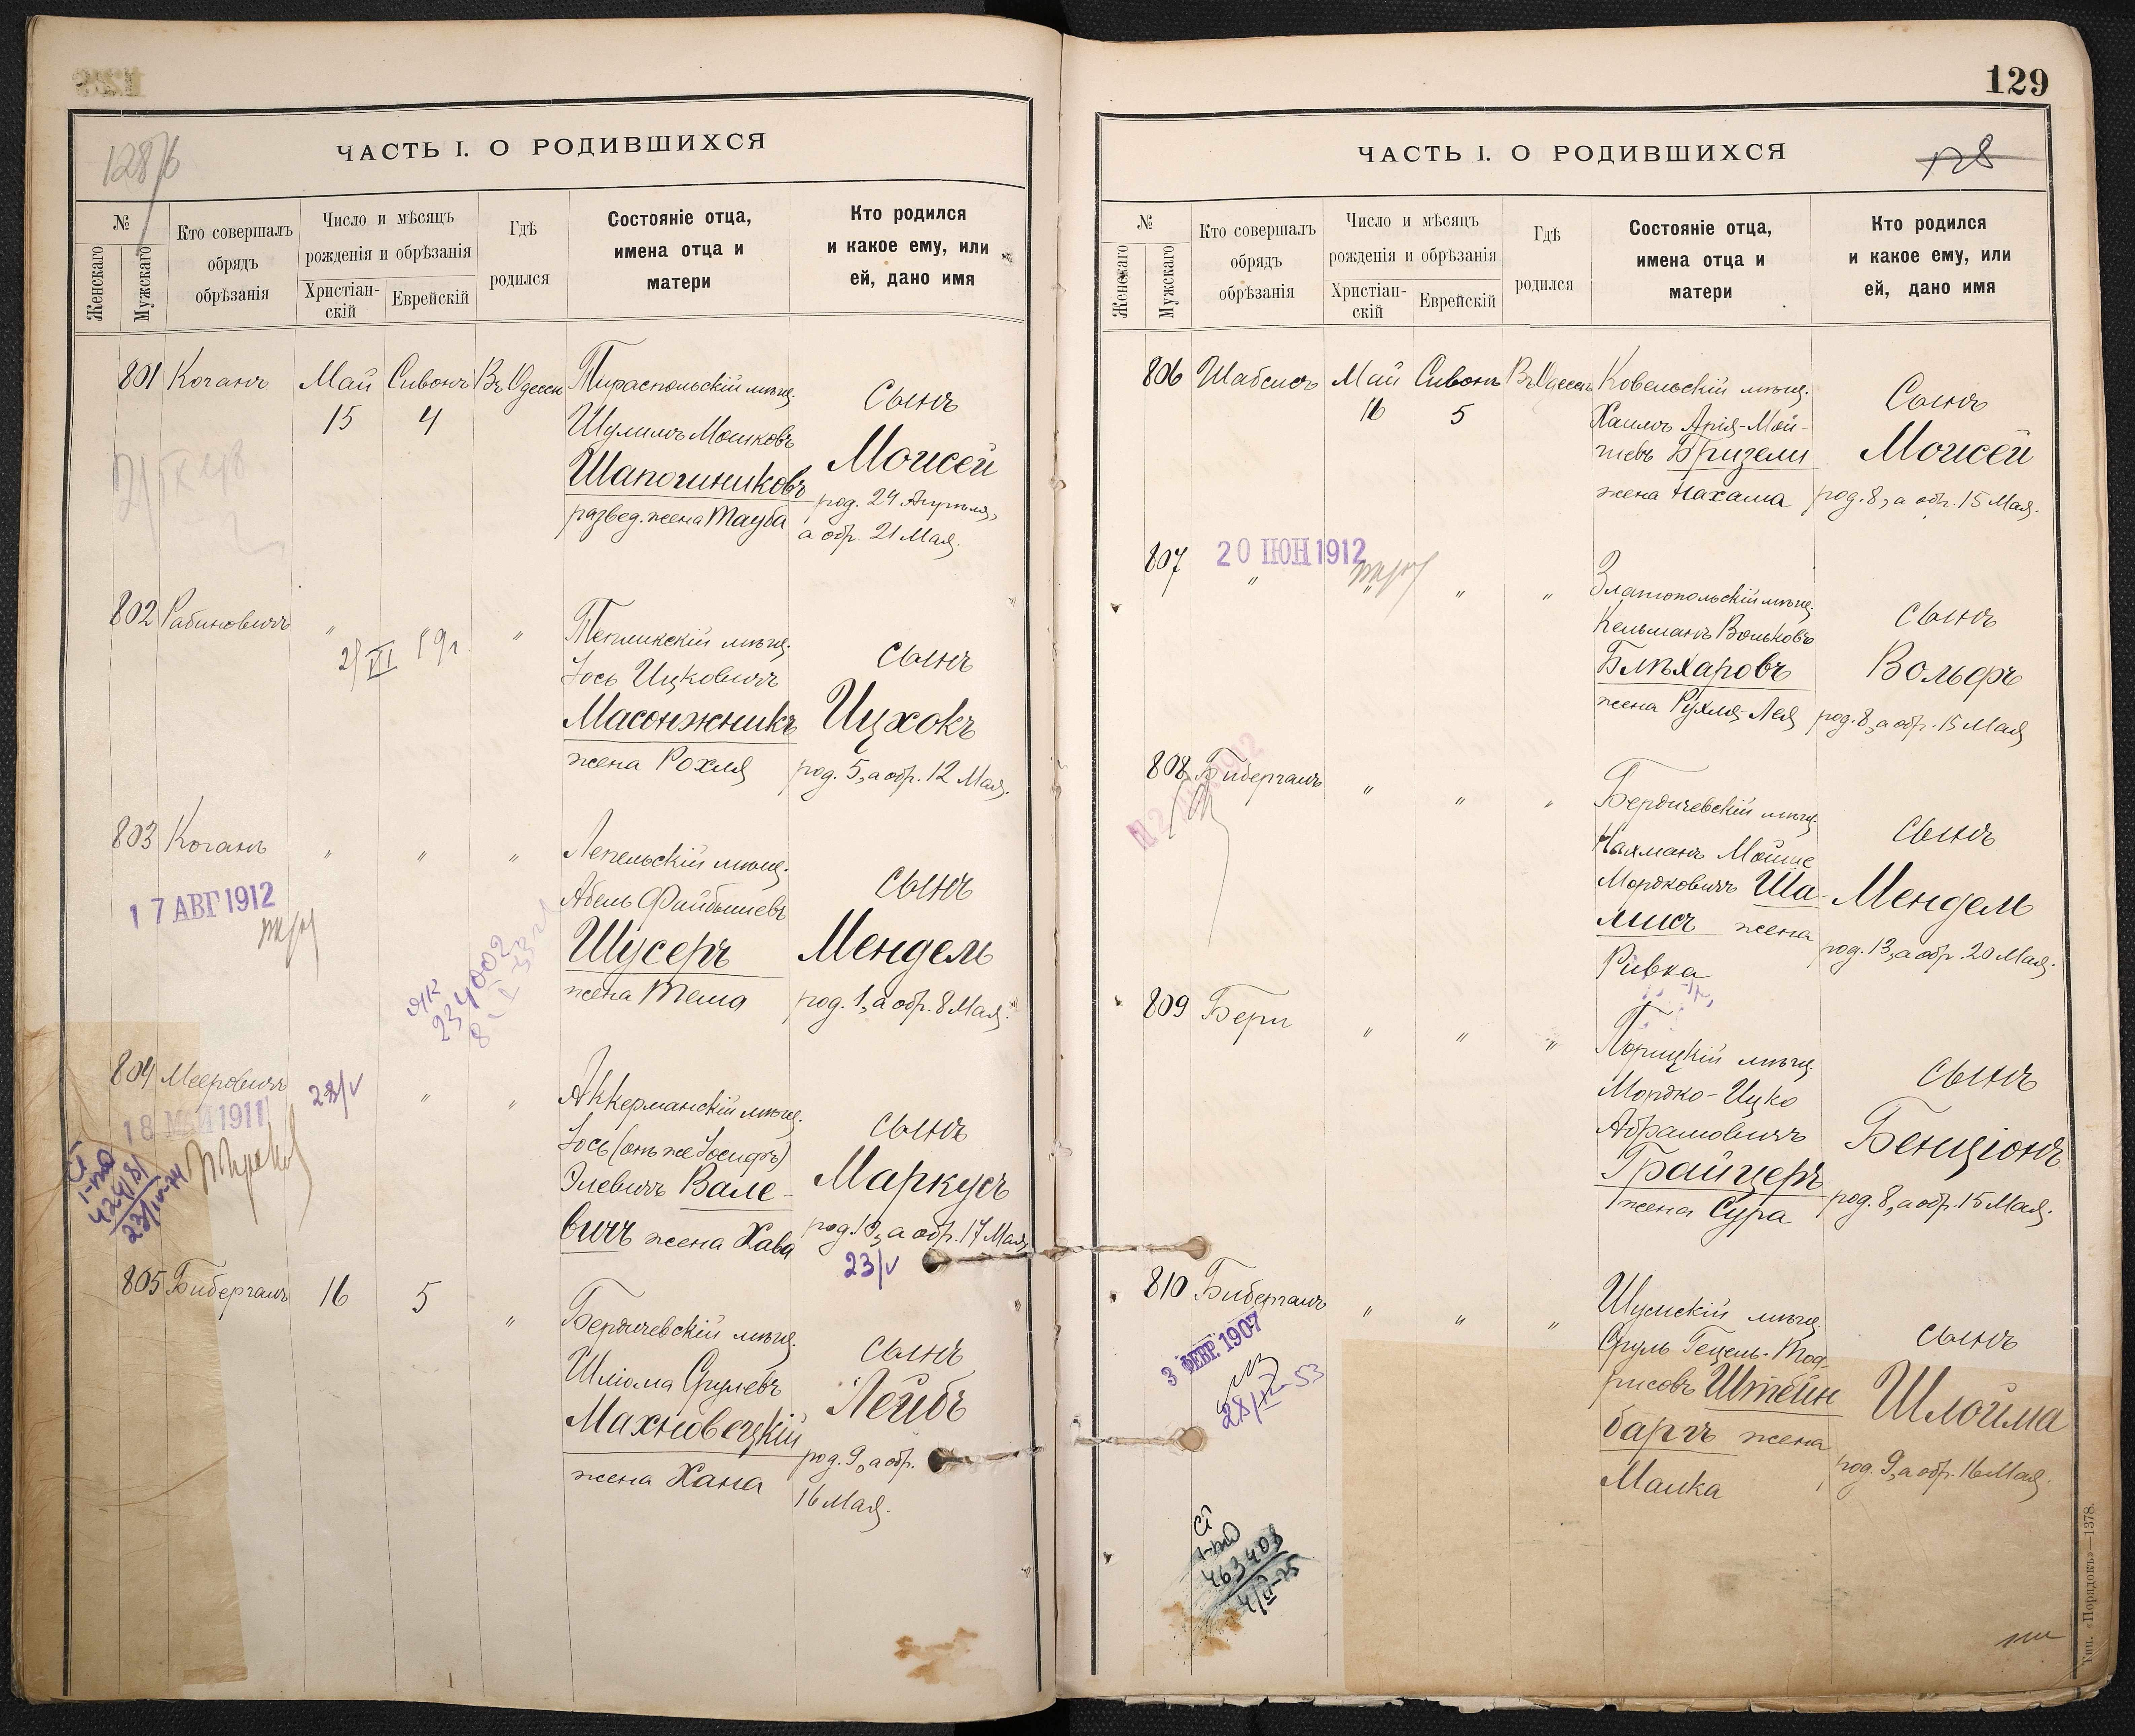 128/б
ЧАСТЬ I. О РОДИВШИХСЯ
№
Женскаго
Мужскаго
Кто совершалъ
обрядъ
обрѣзанія
Число и мѣсяцъ
рожденія и обрѣзанія
Христіан-
скій
Еврейскій
Гдѣ
родился
Состояніе отца,
имена отца и
матери
Кто родился
и какое ему, или
ей, дано имя
801 Коганъ Май 15 Сивонъ 4 Въ Одессѣ
Тираспольскій мѣщ.
Шулимъ Мошковъ
Шапошниковъ
развед. жена Тауба
Сынъ
Моисей
род. 24 Апрѣля,
а обр. 21 Мая.
802 Рабиновичъ " " "
Тепликскій мѣщ.
Іось Ицковичъ
Масонжникъ
жена Рохля
сынъ
Ицхокъ
род. 5, а обр. 12 Мая.
803 Коганъ " " "
17 АВГ 1912
Лепельскій мѣщ.
Абель Файбышевъ
Шусеръ
жена Тема
сынъ
Мендель
род. 1, а обр. 8 Мая.
234002
804 Мееровичъ " "
18 МАЙ 1911
Аккерманскій мѣщ.
Іось (онъ же Іосифъ)
Элевичъ Вале-
вичъ жена Хава
сынъ
Маркусъ
род. 10, а обр. 17 Мая.
23/V
424181
805 Бибергалъ 16 5 "
Бердичевскій мѣщ.
Шліома Срулевъ
Махновецкій
жена Хана
сынъ
Лейбъ
род. 9, а обр.
16 Мая.
129
128
ЧАСТЬ I. О РОДИВШИХСЯ
№
Женскаго
Мужскаго
Кто совершалъ
обрядъ
обрѣзанія
Число и мѣсяцъ
рожденія и обрѣзанія
Христіан-
скій
Еврейскій
Гдѣ
родился
Состояніе отца,
имена отца и
матери
Кто родился
и какое ему, или
ей, дано имя
806 Шабсисъ Май 16 Сивонъ 5 Въ Одессѣ
Ковельскій мѣщ.
Хаимъ Арія-Мой-
шевъ Бризели
жена Нахама
Сынъ
Моисей
род. 8, а обр. 15 Мая.
807 " " " "
20 ІЮН 1912
Златопольскій мѣщ.
Кельманъ Вольковъ
Блѣхаровъ
жена Рухля-Лея
сынъ
Вольфъ
род. 8, а обр. 15 Мая
808 Бибергалъ " " "
Бердичевскій мѣщ.
Нахманъ Мойше
Мордковичъ Ша-
лисъ жена
Ривка
сынъ
Мендель
род. 13, а обр. 20 Мая.
809 Бери " " "
Порицкій мѣщ.
Мордко-Ицко
Абрамовичъ
Грайцеръ
жена Сура
сынъ
Бенціонъ
род. 8, а обр. 15 Мая.
810 Бибергалъ " " "
3 ФЕВР 1907
Шумскій мѣщ.
Сруль Гецель-
Штейн
баргъ жена
Малка
сынъ
Шлойма
род. 9, а обр. 16 Мая.
463408
Тип. «Порядокъ»—1378.